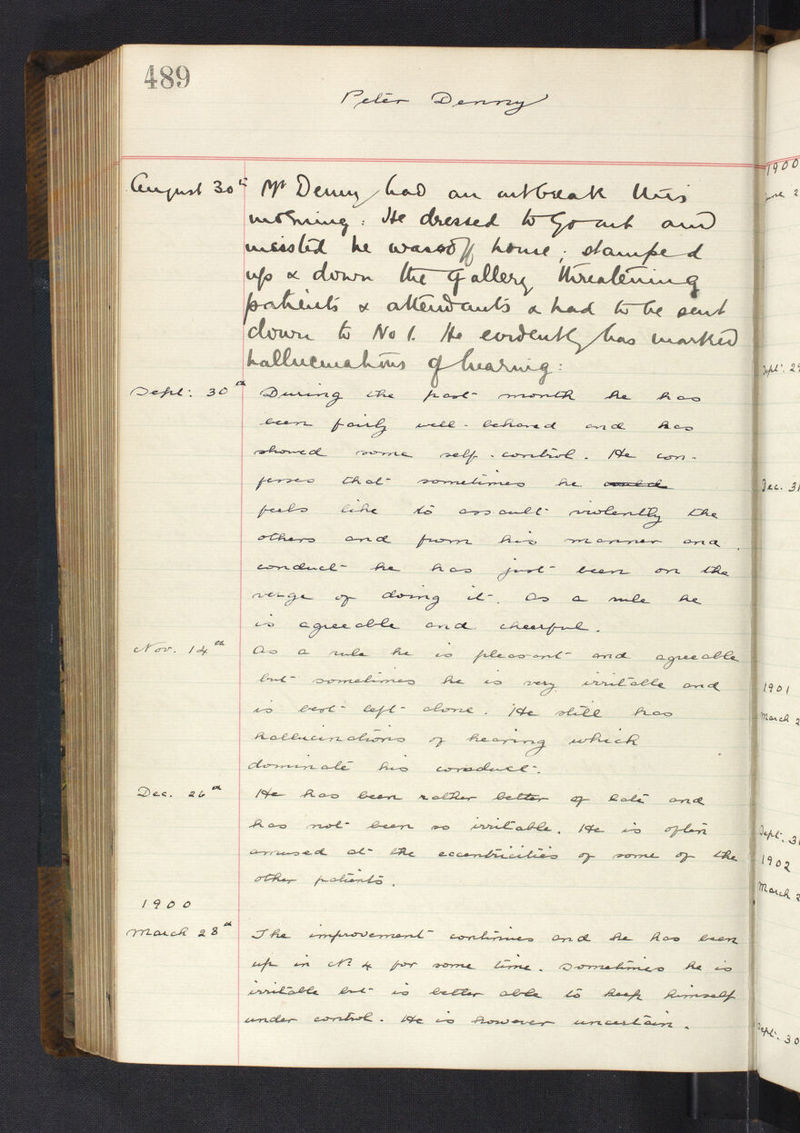 489
Peter Denny
August 30th Mr Denny had an outbreak this
morning. He dressed to go out and
insisted he was off home; stamped
up & down the gallery threatening
patients & attendants & had to be sent
down to No 1. He evidently has marked
hallucinations of hearing:
Sept. 30th During the past month he has
been fairly well-behaved and has
showed some self-control. He con-
fesses that sometimes he could
feels like to assault violently the
others and from his manner and
conduct he has just been on the
verge of doing it. As a rule he
is agreeable and cheerful.
Nov. 14th As a rule he is pleasant and agreeable
but sometimes he is very irritable and
is best left alone. He still has
hallucinations of hearing which
dominate his conduct.
Dec. 26th He has been rather better of late and
has not been so irritable. He is often
amused at the eccentricities of some of the
other patients.
1900
March 28th The improvement continues and he has been
up in No 4 for some time. Sometimes he is
irritable but is better able to keep himself
under control. He is however uncertain.
1900
June 2
Sept. 29
Dec. 31
1901
March 2
Sept. 3
1902
March 2
Sept. 30